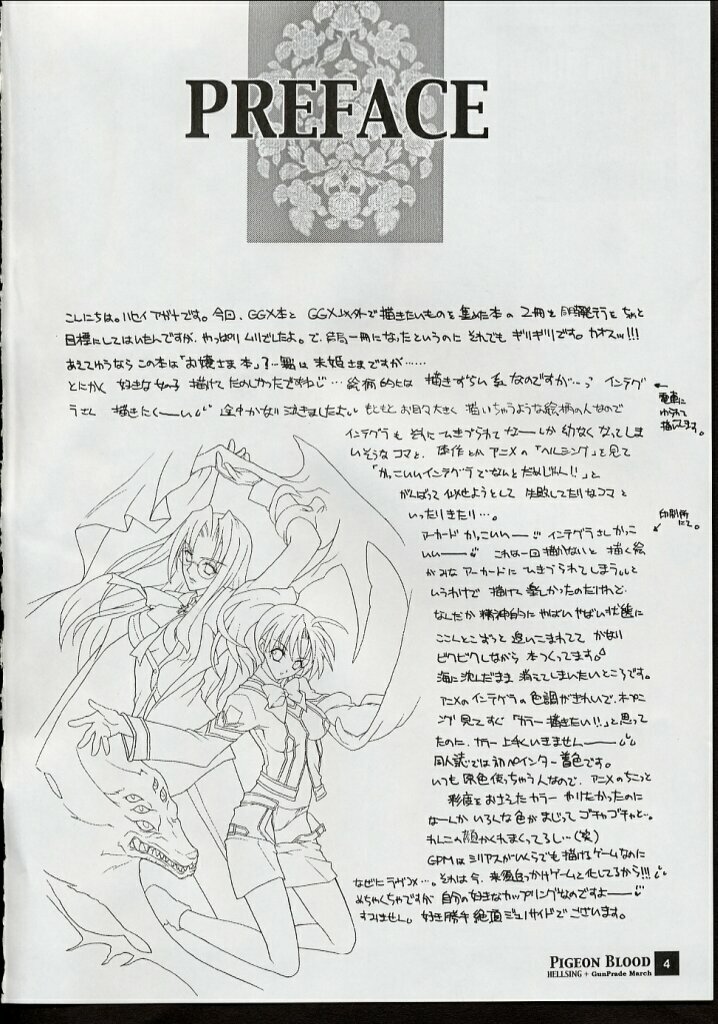 PREFACE
こんにちは。ハセイアガナです。今回、GGX本と GGX以外で描きたいものを集めた本の2冊を
目標にしてはいたんですが、やっぱりムリでしたよ。で、結局一冊になったというのに それでもギリギリです。カオスッ!!!
あえてゆうなら この本は「お嬢さま本」?…
とにかく 好きな女の子 描けて たのしかったですねじ…絵柄的には 描きずらい系なのですが…っ インテグ
ラさん 描きたくーい 途中かなり泣きましたよ。もともと お目々大きく 描いちゃうような絵柄の人なので
インテグラも それに ひきずられて なーんか 幼なくなってしま
いそうなコマと、原作とかアニメの「ヘルシング」を見て
「かっこいいインテグラでなんとだめじゃん!!」と
がんばって 似せようとして 失敗してたりなコマと
いったりきたり…。
アーカード かっこいいー インテグラさん かっこ
いいー これは一回描かないと 描く絵
がみな アーカードに ひきずられてしまうっと
いうわけで 描けて 楽しかったのだけれど、
なんだか 精神的に やばいやばい状態に
とことん 追いこまれてて かなり
ビクビクしながら 本つくってます。
海に沈んだまま 消えてしまいたいところです。
アニメのインテグラの色調がきれいで、オープニ
ング見てすぐ「カラー描きたい!!」と思って
たのに、カラー上手くいきませんー
同人誌では初ペインター着色です。
いつも原色使っちゃう人なので、アニメのちょっと
彩度をおさえたカラー やりたかったのに
なーんか いろんな色がまじって ゴチャゴチャと…
わんこの顔かくれまくってるし…(笑)
GPMはシリアスがいくらでも描けるゲームなのに
なぜにラヴコメ…。それは今、
めちゃくちゃですが 自分の好きなカップリングなのですよー
すみません。好き勝手 絶頂 ジェノサイドで ございます。
←電車に
ゆられて
描いてます。
印刷所
にて。
PIGEON BLOOD
HELLSING + GunPrade March
4